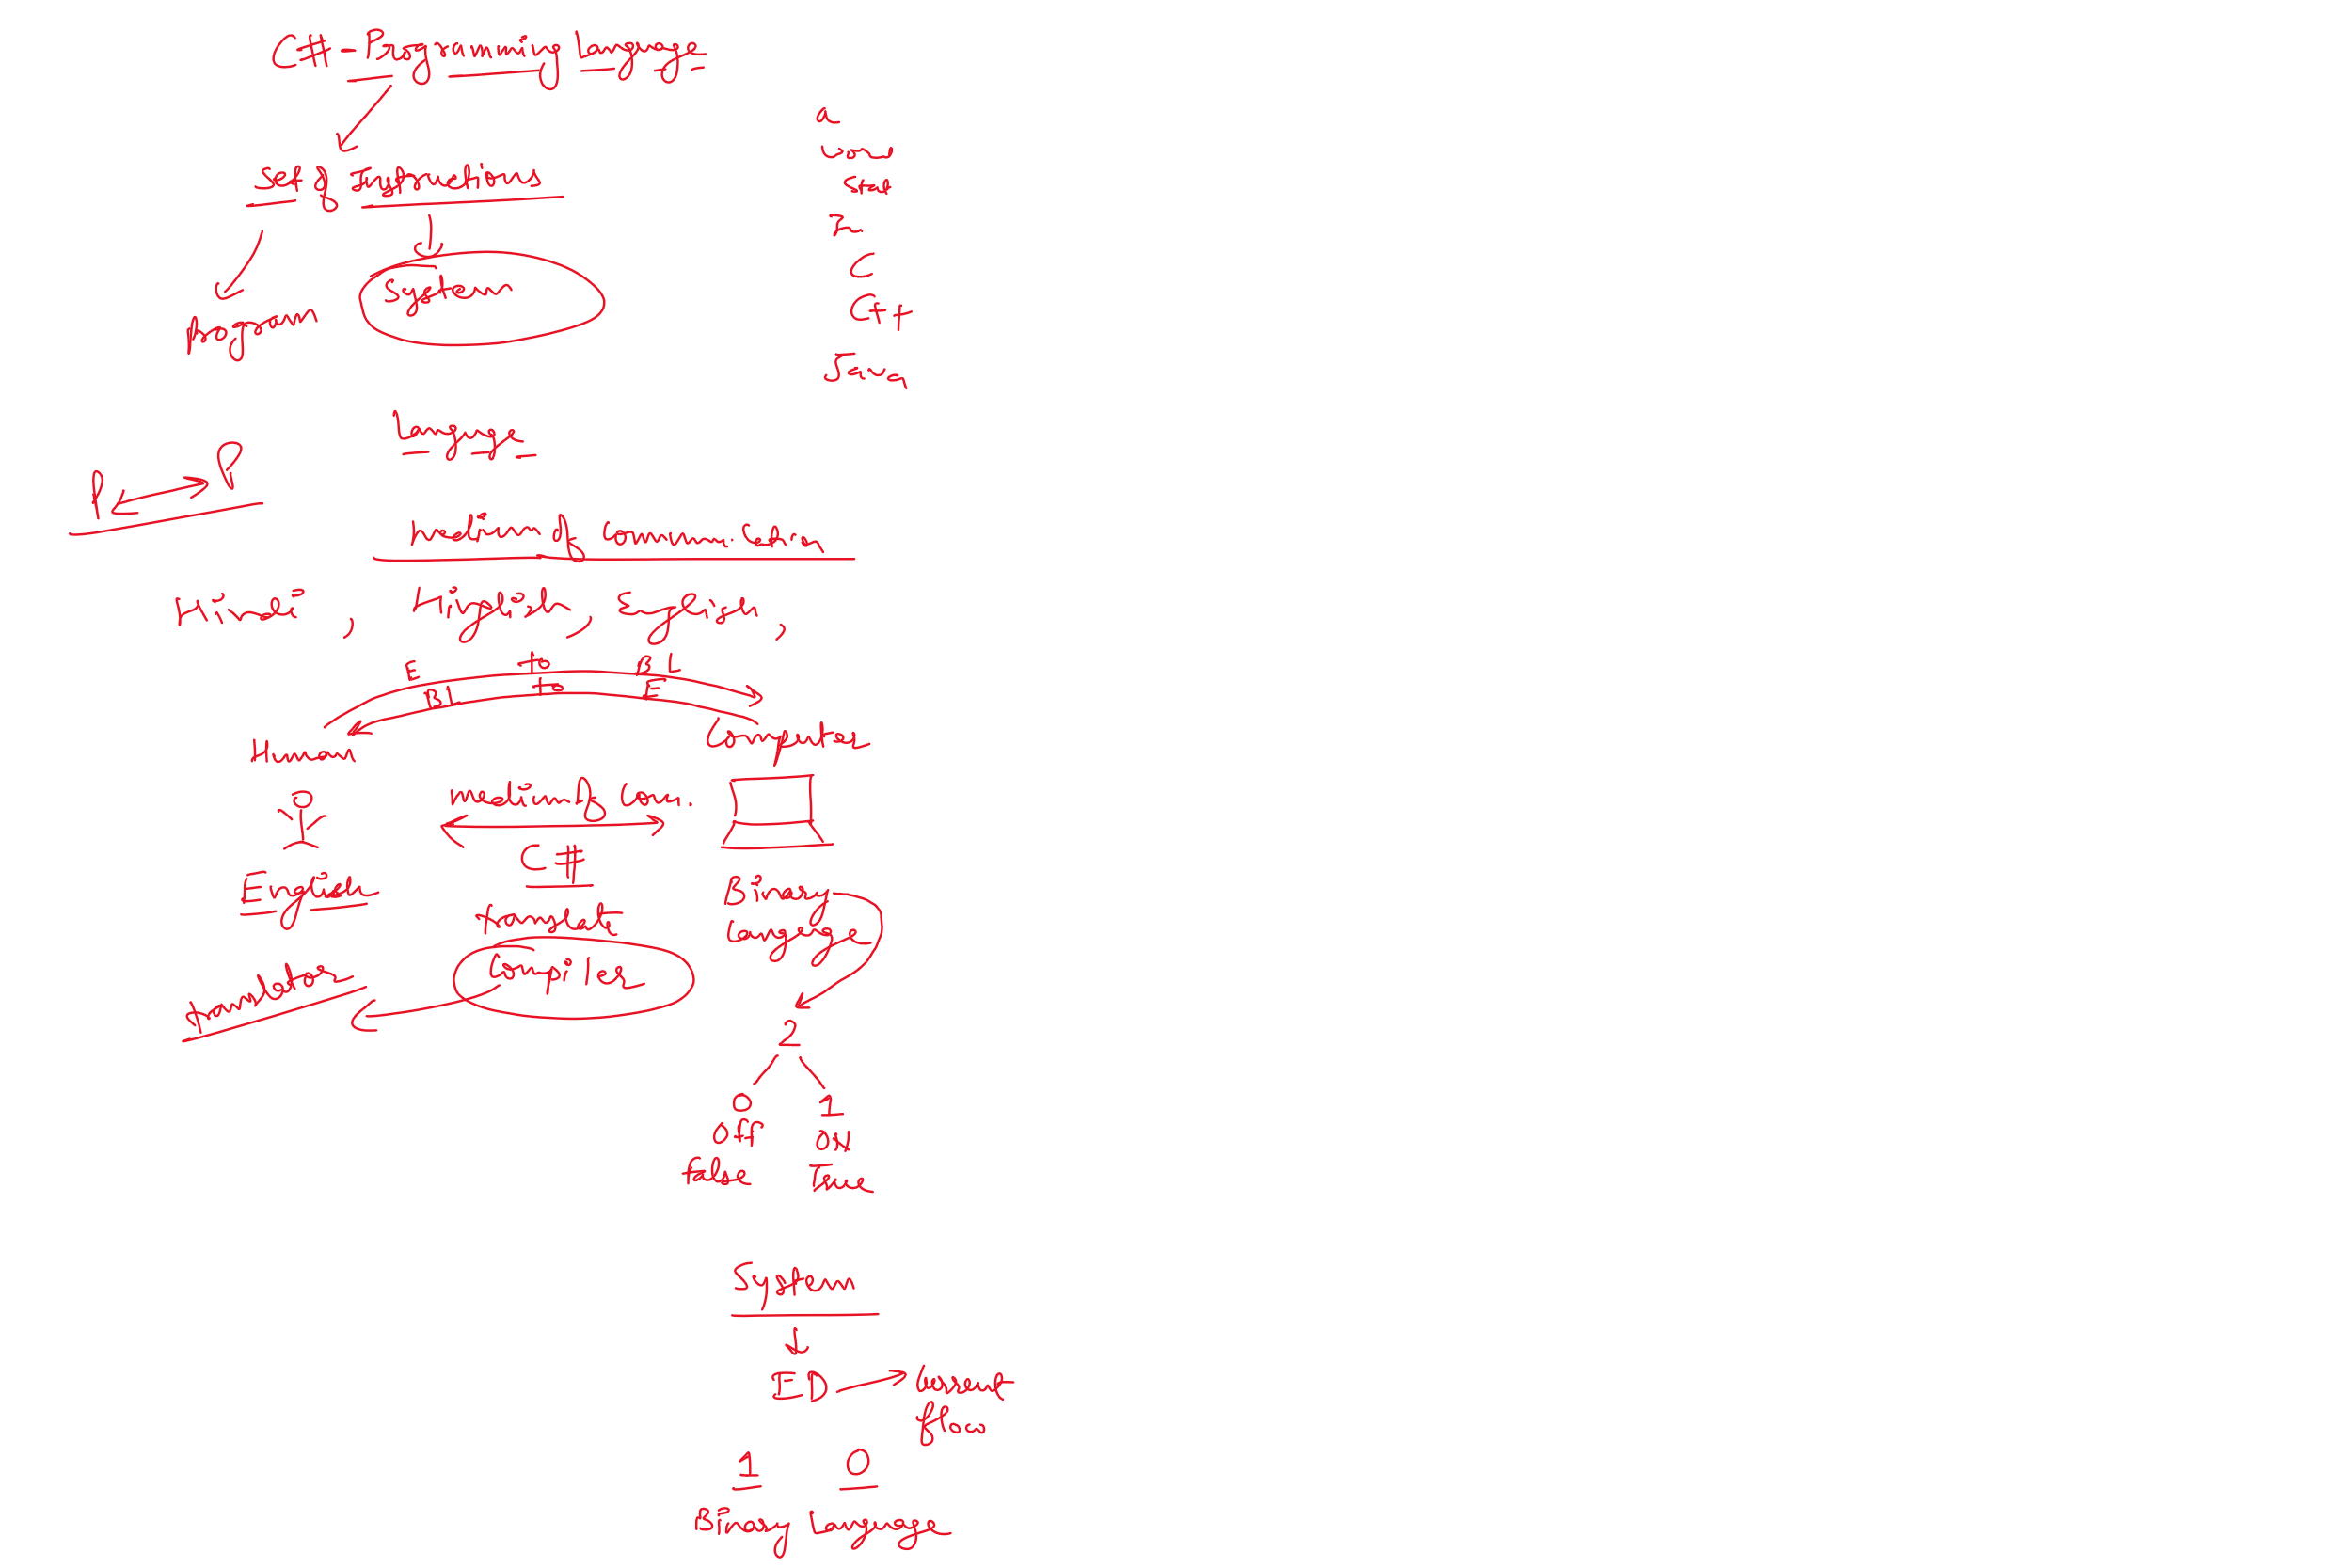 C# - Programming Language
a
word
Set of Instructions
C
system
C++
program
Java
Language
P
P
medium of Communication
Hindi, Hinglish, English,
E to BL
BL to E
Human
Computer
medium of Com.
C#
English
Binary
Language
translate
Compiler
translator
2
0
1
Off
ON
false
True
System
ED
Current
flow
1
0
Binary Language